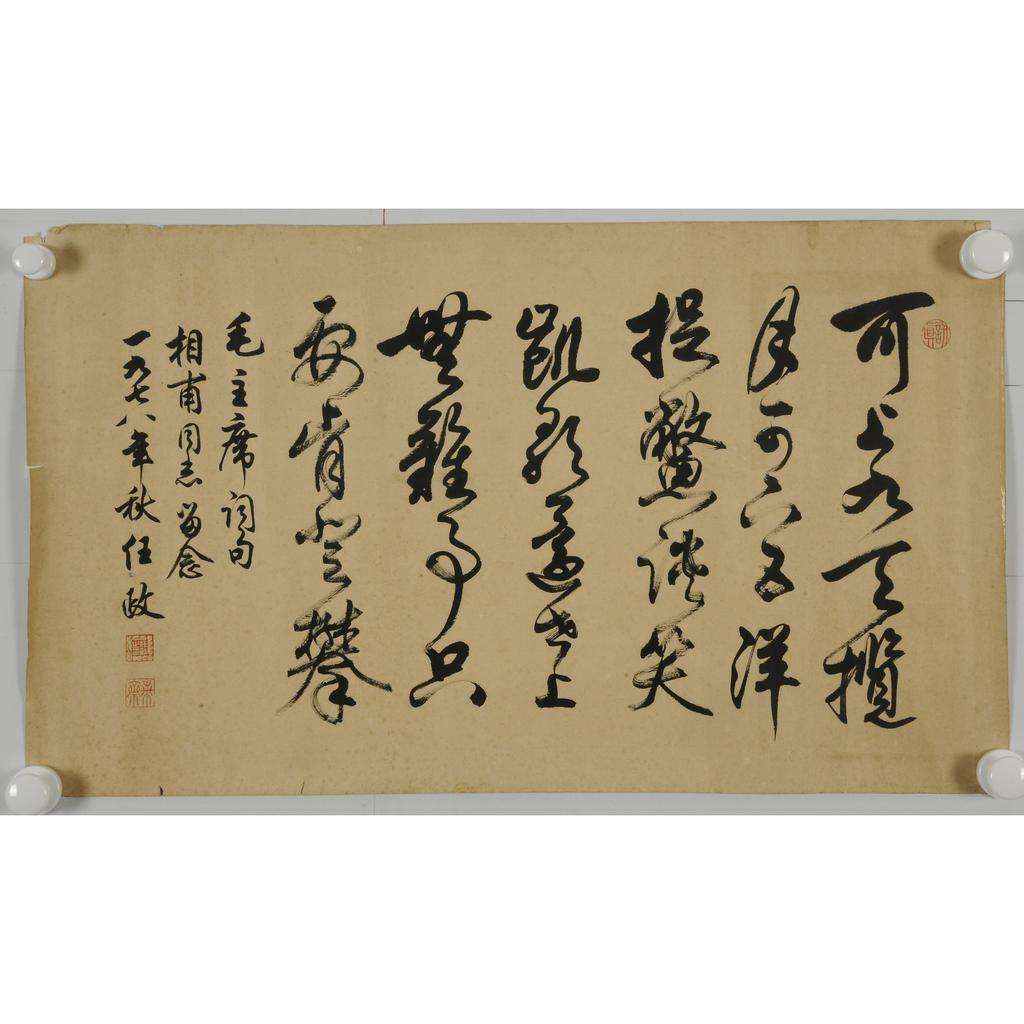 可上九天攬
月可下五洋
捉鱉談笑
凱歌還世上
無難事只
要肯登攀
毛主席詞句
相甫同志留念
一九七八年秋任政